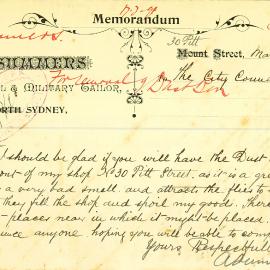 17-2-98
Memorandum
30 Pitt
Mount Street, Ma
SUMMERS
For removal of Dust Bin
The City Coun
L & MILITARY TAILOR,
ORTH SYDNEY,
I should be glad if you will have the Dust
out of my shop No 30 Pitt Street. as it is a gre
a very bad smell. and attracts the flies to
they fill the shop and spoil my goods. There
places near in which it might be placed.
ance anyone. hoping you will be able to com
Yours Respectfull